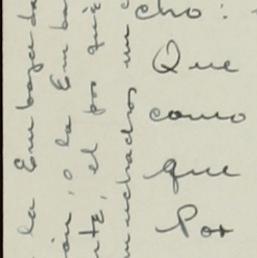 cho:
Que
como
que
Por
la Embajada
o la Emba
el por qué
muchachos un